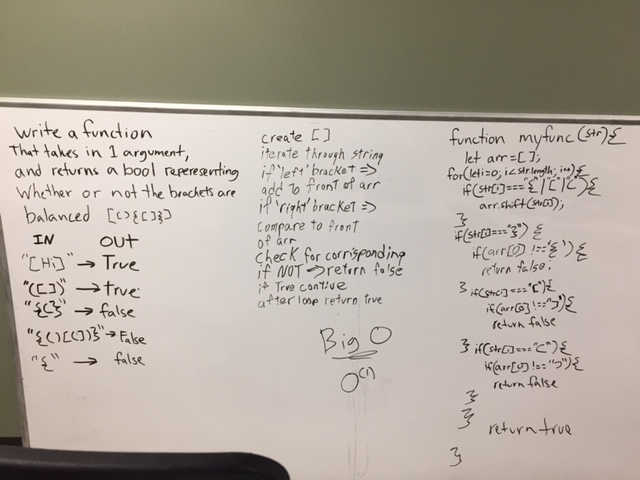 Write a function
That takes in 1 argument,
and returns a bool reperesenting
Whether or not the brackets are
balanced [()&#123;[]}]
IN OUT
"[Hi]" → True
"([])" → true
"{(}" → false
"{()[()}" → False
"{" → false
create []
iterate through string
if 'left' bracket =>
add to front of arr
if 'right' bracket =>
compare to front
of arr
check for corrisponding
if NOT → return false
if True contive
after loop return true
Big O
O(1)
function myfunc(str){
let arr=[];
for(let i=0; i<str.length; i++){
if(str[i]==="{"|"["|"("){
arr.shift(str[i]);
}
if(str[i]==="}"){
if(arr[0] !=="{"){
return false;
} if(str[i]==="["{
if(arr[0] !=="]"){
return false
} if(str[i]==="("){
if(arr[0] !==")"){
return false
}
}
return true
}